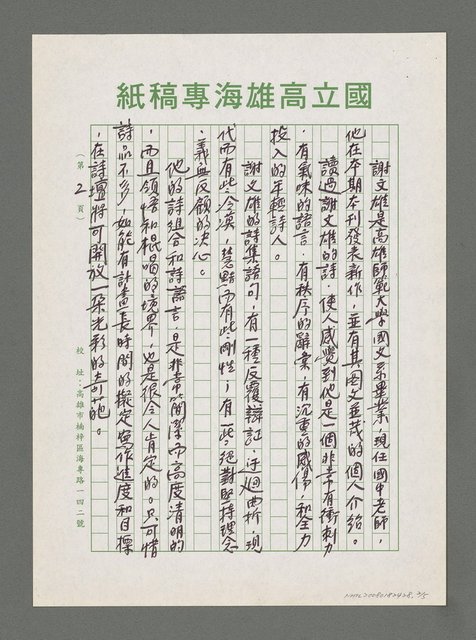 國立高雄海專稿紙
謝文雄是高雄師範大學國文系畢業,現任國中老師,
他在本期本刊發表新作,並有其圖文並茂的個人介紹。
讀過謝文雄的詩,使人感覺到他是一個非常有衝刺力
,有氣味的語言,有秩序的辭彙,有沉重的感傷,和全力
投入的年輕詩人。
謝文雄的詩集語句,有一種反覆辯証,迂迴曲折,現
代而有些冷漠,慧黠而有些剛性;有一些絕對堅持理念
、義無反顧的決心。
他的詩組合和詩語言,是非常簡潔而高度清明的
,而且領悟和棍喝的境界,也是很令人肯定的。只可惜
詩品不多,如能有計畫長時間的擬定寫作進度和目標
,在詩壇將可開放一朵光彩的奇葩。
(第 2 頁)
校 址:高雄市楠梓區海專路一四二號
NMTL20080182428, 3/5